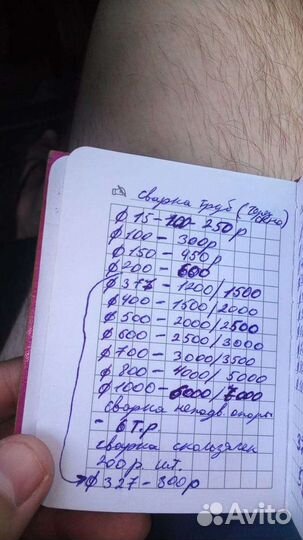 Сварка труб (
ф 15-100- 250р
ф100 - 300р
ф150 - 450р
ф200 - 600
ф377 - 1200/1500
ф400 - 1500/2000
ф500 - 2000/2500
ф600 - 2500/3000
ф700 - 3000/3500
ф800 - 4000/5000
ф1000 - 6000/7000
сварка неподв опоры
- 6 т.р
сварка скользячей
200р. шт.
ф327 - 800р
Avito